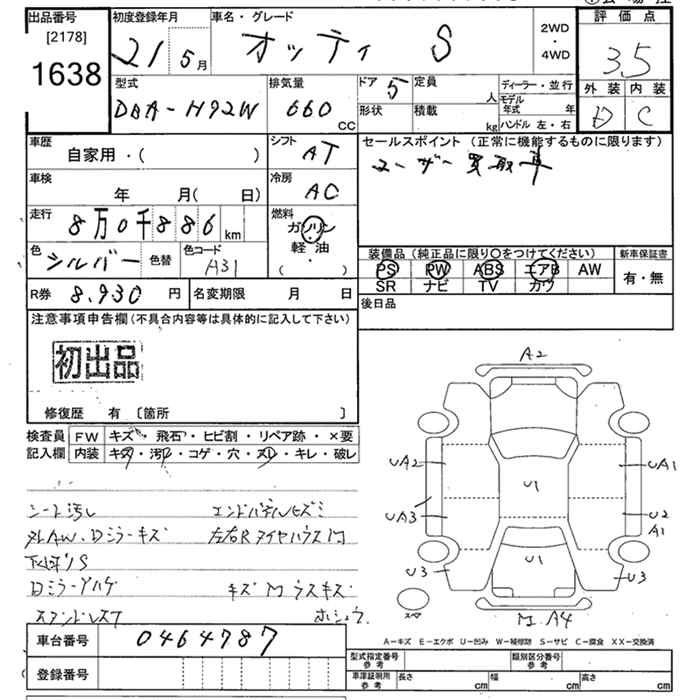 出品番号
[2178]
1638
初度登録年月
21年5月
車名・グレード
オッティ S
2WD
・
4WD
評価点
3.5
外装 内装
D C
型式
DBA-H92W
排気量
660 CC
ドア 5
定員 人
形状
積載 kg
ディーラー・並行
モデル年式 年
ハンドル 左・右
車歴
自家用・( )
シフト
AT
セールスポイント (正常に機能するものに限ります)
ユーザー買取車
車検
年 月( 日)
冷房
AC
走行
8万0千886km
燃料
ガソリン
軽・油
( )
色
シルバー
色替
色コード
A31
装備品 (純正品に限り○をつけてください)
新車保証書
PS PW ABS エアB AW
SR ナビ TV カワ
有・無
R券 8.930円
名変期限 月 日
後日品
注意事項申告欄 (不具合内容等は具体的に記入して下さい)
初出品
修復歴 有 〔箇所 〕
検査員
記入欄
FW キズ・飛石・ヒビ割・リペア跡・×要
内装 キズ・汚れ・コゲ・穴・スレ・キレ・破レ
シート汚し
エンドパネルヒズミ
AW、Dミラーキズ
左右Rタイヤハウス
下回りS
Dミラーゲハゲ
キズ
ウスキズ
ホシュウ
A2
UA2
UA1
U1
UA3
U2
A1
U3
U1
U3
スペア
A4
A−キズ E−エクボ U−凹み W−補修跡 S−サビ C−腐食 XX−交換済
車台番号 0464787
登録番号
型式指定番号
参考
類別区分番号
参考
車庫証明用
参考
長さ cm 幅 cm 高さ cm